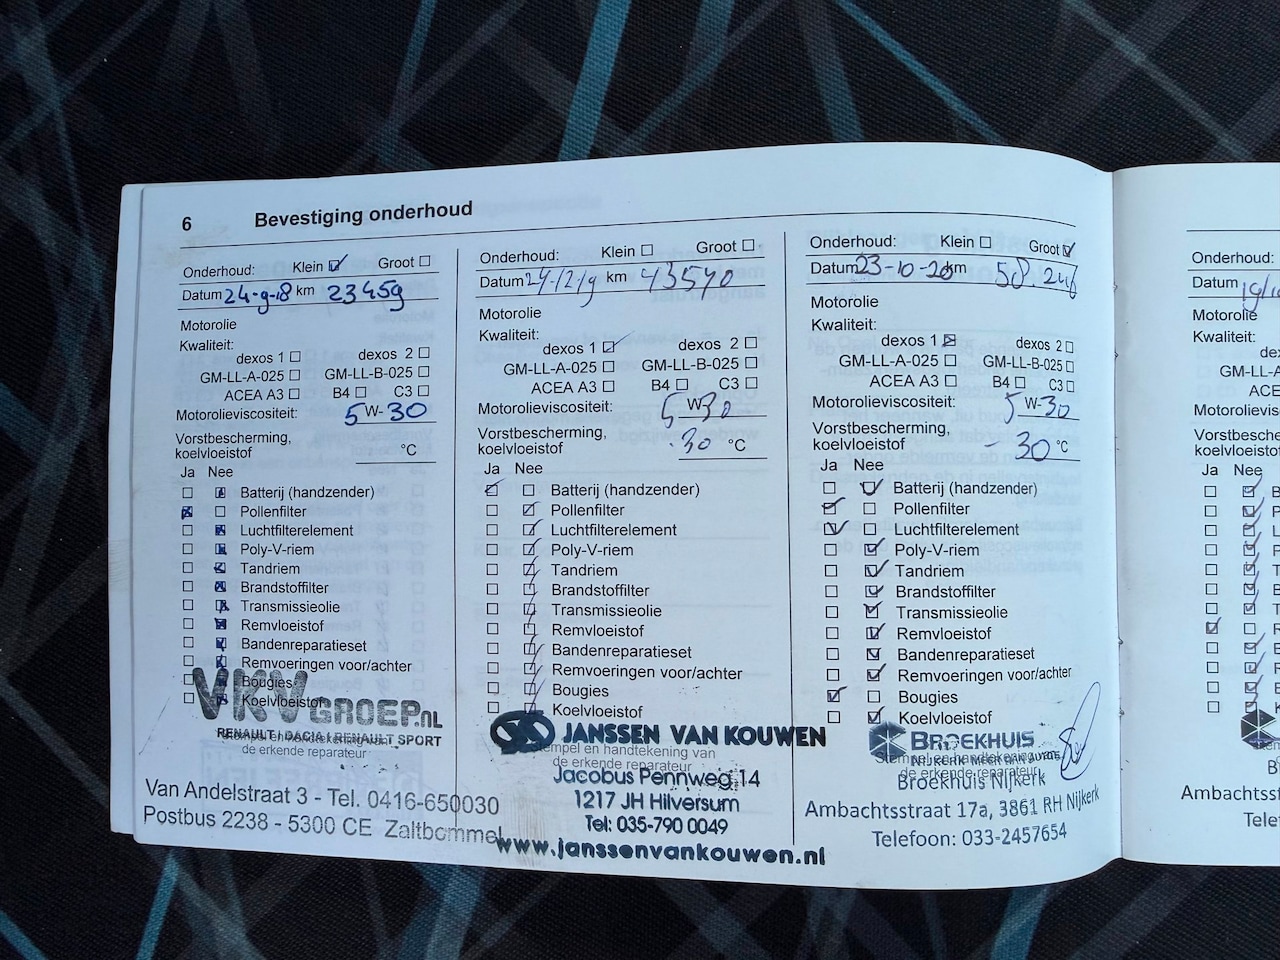 6 Bevestiging onderhoud
Onderhoud: Klein Groot
Datum 24-9-18 km 23459
Motorolie
Kwaliteit:
dexos 1 dexos 2
GM-LL-A-025 GM-LL-B-025
ACEA A3 B4 C3
Motorolieviscositeit: 5 W- 30
Vorstbescherming,
koelvloeistof °C
Ja Nee
Batterij (handzender)
Pollenfilter
Luchtfilterelement
Poly-V-riem
Tandriem
Brandstoffilter
Transmissieolie
Remvloeistof
Bandenreparatieset
Remvoeringen voor/achter
Bougies
Koelvloeistof
VKV GROEP.NL
RENAULT / DACIA / RENAULT SPORT
Stempel en handtekening van
de erkende reparateur
Van Andelstraat 3 - Tel. 0416-650030
Postbus 2238 - 5300 CE Zaltbommel
Onderhoud: Klein Groot
Datum km 43540
Motorolie
Kwaliteit:
dexos 1 dexos 2
GM-LL-A-025 GM-LL-B-025
ACEA A3 B4 C3
Motorolieviscositeit: 5 W- 30
Vorstbescherming,
koelvloeistof 30 °C
Ja Nee
Batterij (handzender)
Pollenfilter
Luchtfilterelement
Poly-V-riem
Tandriem
Brandstoffilter
Transmissieolie
Remvloeistof
Bandenreparatieset
Remvoeringen voor/achter
Bougies
Koelvloeistof
JANSSEN VAN KOUWEN
Stempel en handtekening van
de erkende reparateur
Jacobus Pennweg 14
1217 JH Hilversum
Tel: 035-790 0049
www.janssenvankouwen.nl
Onderhoud: Klein Groot
Datum 23-10-20 km
Motorolie
Kwaliteit:
dexos 1 dexos 2
GM-LL-A-025 GM-LL-B-025
ACEA A3 B4 C3
Motorolieviscositeit: 5 W-30
Vorstbescherming,
koelvloeistof - 30 °C
Ja Nee
Batterij (handzender)
Pollenfilter
Luchtfilterelement
Poly-V-riem
Tandriem
Brandstoffilter
Transmissieolie
Remvloeistof
Bandenreparatieset
Remvoeringen voor/achter
Bougies
Koelvloeistof
BROEKHUIS
Stempel en handtekening van
de erkende reparateur
Broekhuis Nijkerk
Ambachtsstraat 17a, 3861 RH Nijkerk
Telefoon: 033-2457654
Onderhoud:
Datum
Motorolie
Kwaliteit:
dex
GM-LL-A
ACEA
Motorolievis
Vorstbesche
koelvloeistof
Ja Nee
B
Ambachtsst
Tele